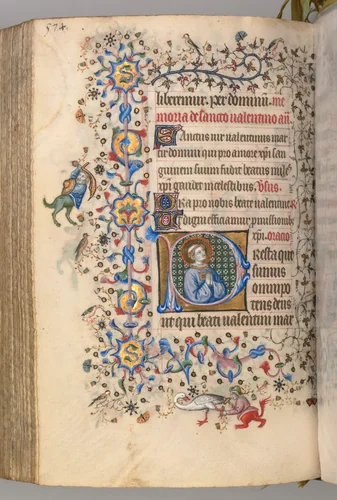 574
liberemur. per dominū. me
moria de sancto valentino añ.
Sanctus vir valentinus mar
tir domini qui pro amore xp̄i san
guinem suum fudit beatus miles
xp̄i gaudet in celestibus. Vsus.
Ora pro nobis beate valentine. R
Ut digni efficiamur pmissionib
xp̄i. oratio
Presta que
sumus
omnipo
tens deus
ut qui beati valentini mar